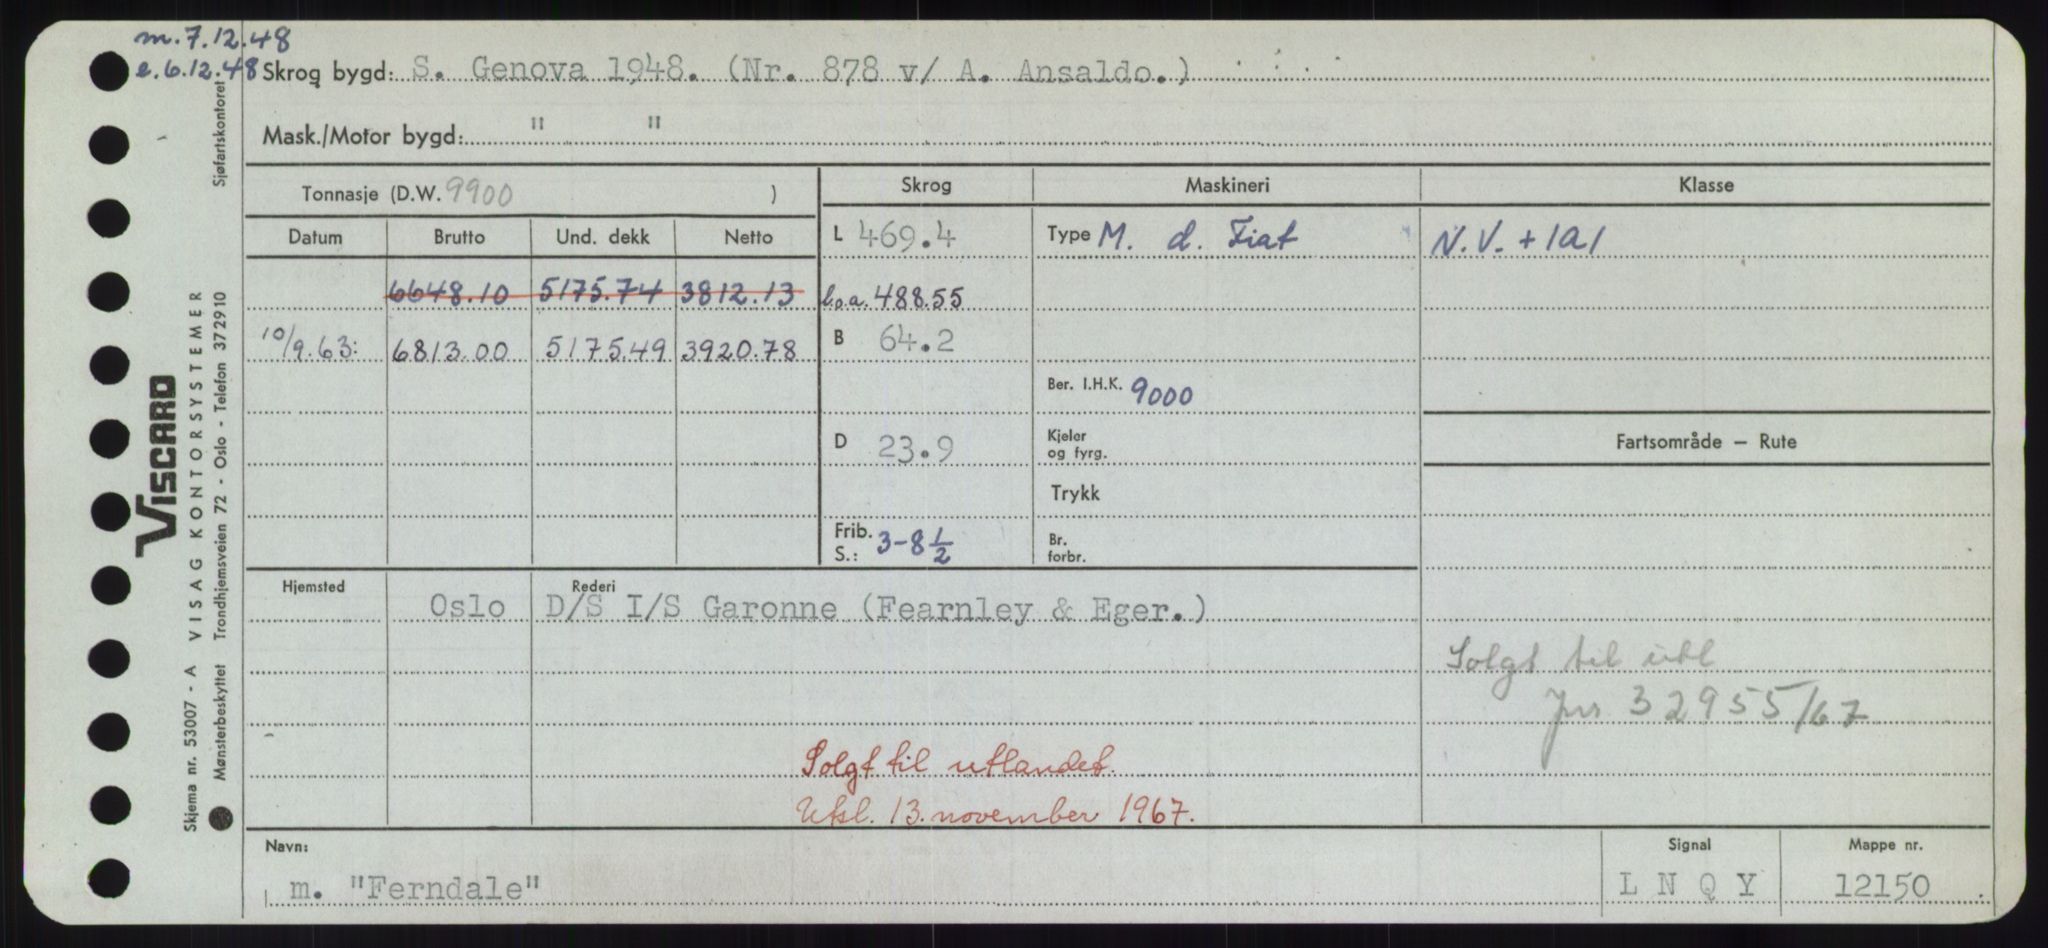 m. 7.12.48
e. 6.12.48 Skrog bygd: S. Genova 1948. (Nr. 878 v/ A. Ansaldo.)
Mask./Motor bygd: " "
Tonnasje (D.W. 9900 ) Skrog Maskineri Klasse
Datum Brutto Und. dekk Netto L 469.4 Type M. d. Fiat N.V. + 1A1
6648.10 5175.74 3812.13 l.o.a. 488.55
10/9.63: 6813.00 5175.49 3920.78 B 64.2
Ber. I.H.K. 9000
D 23.9 Kjeler og fyrg. Fartsområde — Rute
Trykk
Frib. S.: 3-8 1/2 Br. forbr.
Hjemsted Rederi
Oslo D/S I/S Garonne (Fearnley & Eger.)
Solgt til utl
Jnr 32955/67
Solgt til utlandet.
Utsl. 13. november 1967.
Navn: Signal Mappe nr.
m. "Ferndale" L N Q Y 12150
VISCARD
Skjema nr. 53007 - A VISAG KONTORSYSTEMER
Mønsterbeskyttet Trondhjemsveien 72 - Oslo - Telefon 372910 Sjøfartskontoret